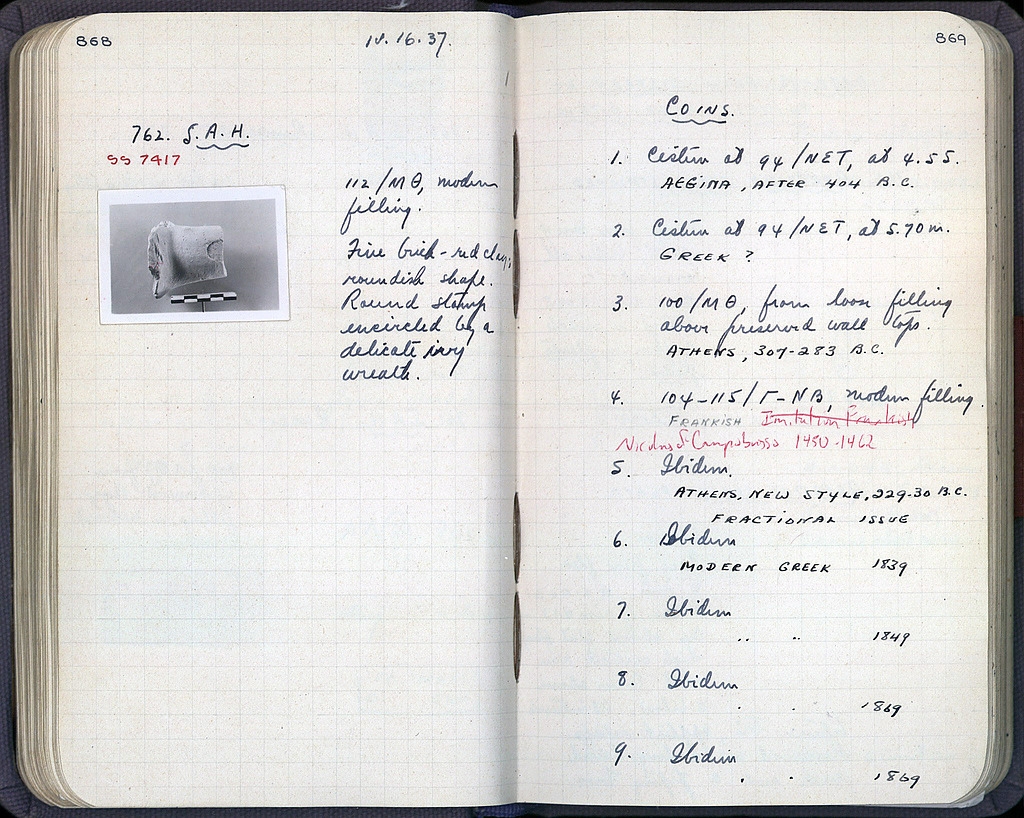 868
IV.16.37.
762. S.A.H.
SS 7417
112/ΜΘ, modern
filling.
Fine brick-red clay;
roundish shape.
Round stamp
encircled by a
delicate ivy
wreath.
869
COINS.
1. Cistern at 94/ΝΣΤ, at 4.55.
AEGINA, AFTER 404 B.C.
2. Cistern at 94/ΝΣΤ, at 5.70m.
GREEK ?
3. 100/ΜΘ, from loose filling
above preserved wall tops.
ATHENS, 307-283 B.C.
4. 104-115/Γ-ΝΒ, modern filling.
FRANKISH Imitation Frankish
Nicolas d Campobasso 1450-1462
5. Ibidem.
ATHENS, NEW STYLE, 229-30 B.C.
FRACTIONAL ISSUE
6. Ibidem
MODERN GREEK 1839
7. Ibidem
" " 1849
8. Ibidem
" " 1869
9. Ibidem
" " 1869